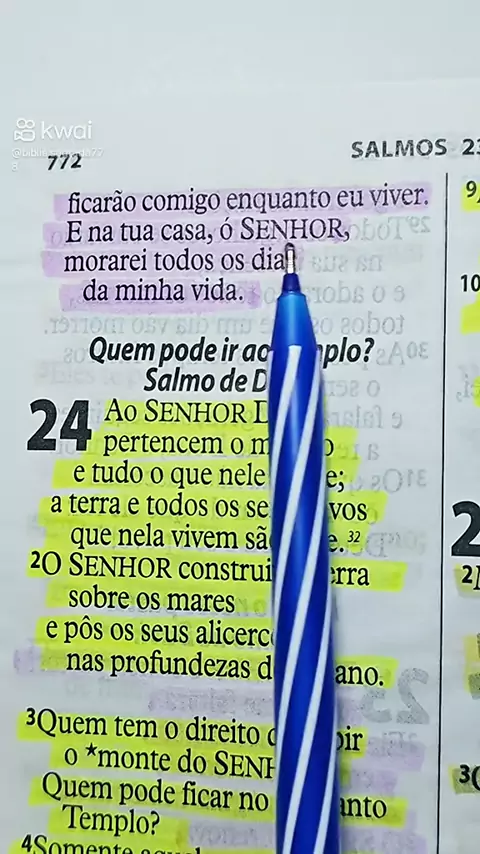 kwai
772
SALMOS 23
ficarão comigo enquanto eu viver.
E na tua casa, ó SENHOR,
morarei todos os dia
da minha vida.
Quem pode ir ao mplo?
Salmo de D
24 Ao SENHOR D
pertencem o m o
e tudo o que nele e;
a terra e todos os se vos
que nela vivem sã e.³²
2O SENHOR construi erra
sobre os mares
e pôs os seus alicerc
nas profundezas d ano.
3Quem tem o direito d bir
o *monte do SENH
Quem pode ficar no anto
Templo?
4Somente
9
10
2
2
3